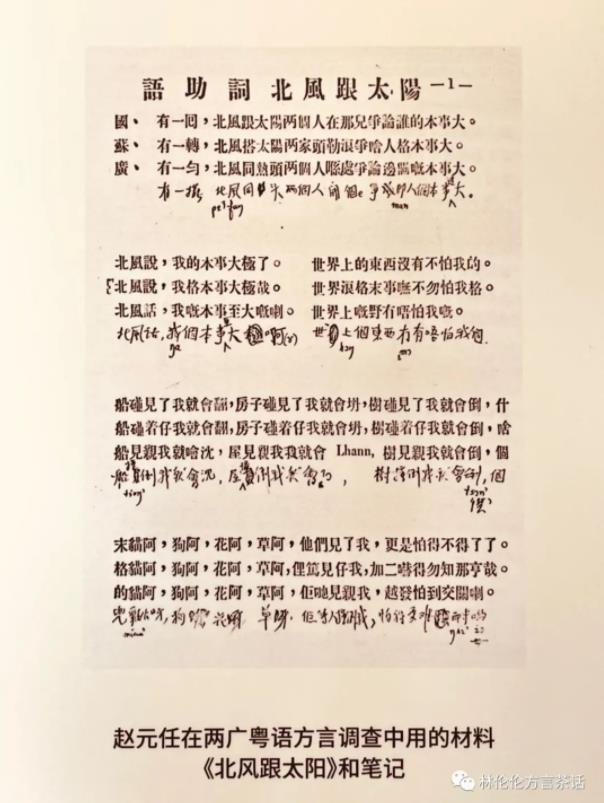 語助詞 北風跟太陽 —1—
國、 有一回,北風跟太陽兩個人在那兒爭論誰的本事大。
蘇、 有一轉,北風搭太陽兩家頭勒浪爭啥人格本事大。
廣、 有一勻,北風同熱頭兩個人喺處爭論邊個嘅本事大。
有一 北風同 頭兩個人 爭 人個本事大。
北風說,我的本事大極了。 世界上的東西沒有不怕我的。
北風說,我格本事大極哉。 世界浪格末事嘸不勿怕我格。
北風話,我嘅本事至大嘅喇。 世界上嘅野冇唔怕我嘅。
北風話,我個本事大 世 上個東西冇有唔怕我個
船碰見了我就會翻,房子碰見了我就會坍,樹碰見了我就會倒,什
船碰着仔我就會翻,房子碰着仔我就會坍,樹碰着仔我就會倒,啥
船見親我就噲沈,屋見親我我就會 Lhann,樹見親我就會倒,個
船 倒我就會沉,屋 倒我就會 , 樹 倒我就會倒,個
末貓阿,狗阿,花阿,草阿,他們見了我,更是怕得不得了了。
格貓阿,狗阿,花阿,草阿,俚篤見仔我,加二嚇得勿知那亨哉。
的貓阿,狗阿,花阿,草阿,佢哋見親我,越發怕到交關喇。
狗 花 草 怕得
赵元任在两广粤语方言调查中用的材料
《北风跟太阳》和笔记
林伦伦方言茶话